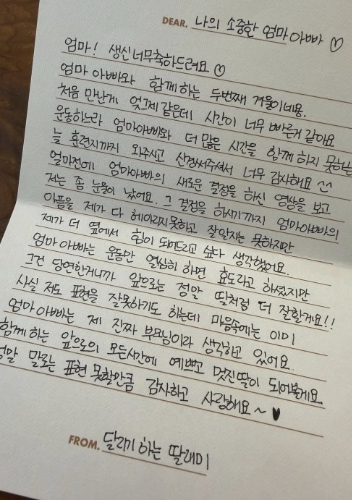 DEAR. 나의 소중한 엄마 아빠 ♡
엄마! 생신 너무 축하드려요 ♡
엄마 아빠와 함께 하는 두번째 겨울이네용.
처음 만난게 엊그제 같은데 시간이 너무 빠른거 같아요
운동하느라 엄마아빠와 더 많은 시간을 함께 하지 못하는데
늘 훈련지까지 와주시고 신경써주셔서 너무 감사해요 ^^
얼마전에 엄마아빠의 새로운 결정을 하신 영상을 보고
저는 좀 눈물이 났어요. 그 결정을 하시기까지 엄마아빠의
아픔을 제가 다 헤아리지 못하고 잘알지는 못하지만
제가 더 옆에서 힘이 되어드리고 싶다 생각했어요.
엄마 아빠는 운동만 열심히 하면 효도라고 하셨지만
그건 당연한거니까 앞으로는 정말 딸처럼 더 잘할게요!!
사실 저도 표현을 잘못하기도 하는데 마음속에는 이미
엄마아빠는 제 진짜 부모님이라 생각하고 있어요.
함께 하는 앞으로의 모든시간에 예쁘고 멋진딸이 되어볼게요.
정말 말로는 표현 못할만큼 감사하고 사랑해요~ ♥
FROM. 달리기 하는 딸래미